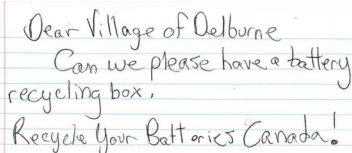 Dear Village of Delburne
Can we please have a battery
recycling box.
Recycle Your Batteries Canada!